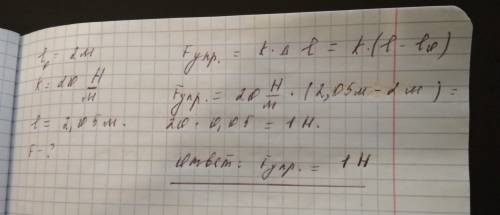 l₀ = 2м
k = 20 Н/м
l = 2,05м.
F - ?
Fупр. = k · Δ l = k · (l - l₀)
Fупр. = 20 Н/м · (2,05м - 2 м) =
20 · 0,05 = 1Н.
Ответ: Fупр. = 1Н